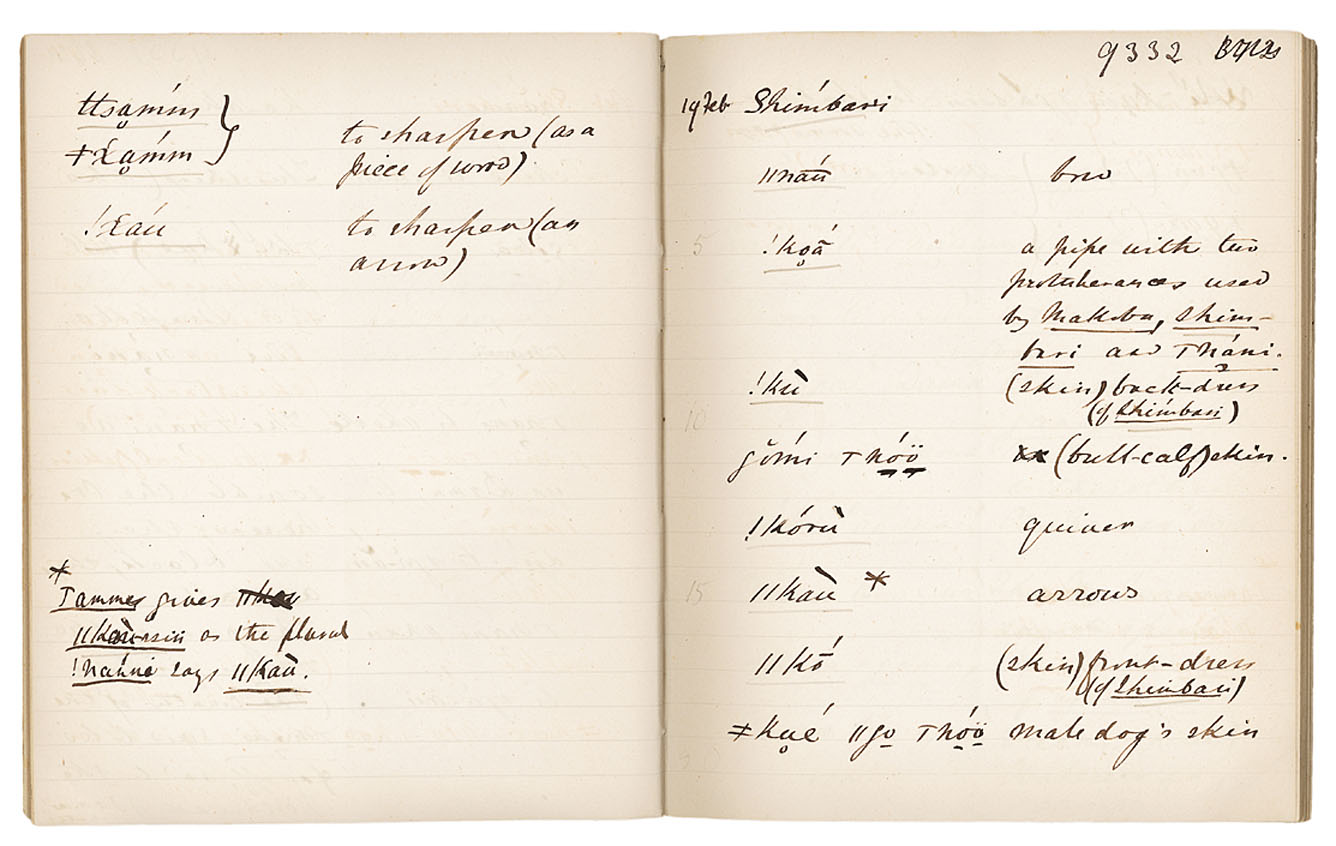 ttsą́mm }
≠x́ą́mm
to sharpen (as a
piece of wood)
!x́áu
to sharpen (an
arrow)
*
Tamme gives
||Kaùssin as the plural
!nańni says ||Kaù.
9332
19 Feb Shímbari
||naū́ bow
5 !kọā́ a pipe with two
protuberances used
by Makoba, Shim-
bari and Tháni.
!kù (skin) back-dress
(of Shímbari)
10
gǒmi Thóö (bull-calf) skin.
!kórù quiver
15 ||kaù * arrows
||kó̄ (skin) front-dress
(of Shimbari)
≠kụé ||go Thóö male dog's skin
20